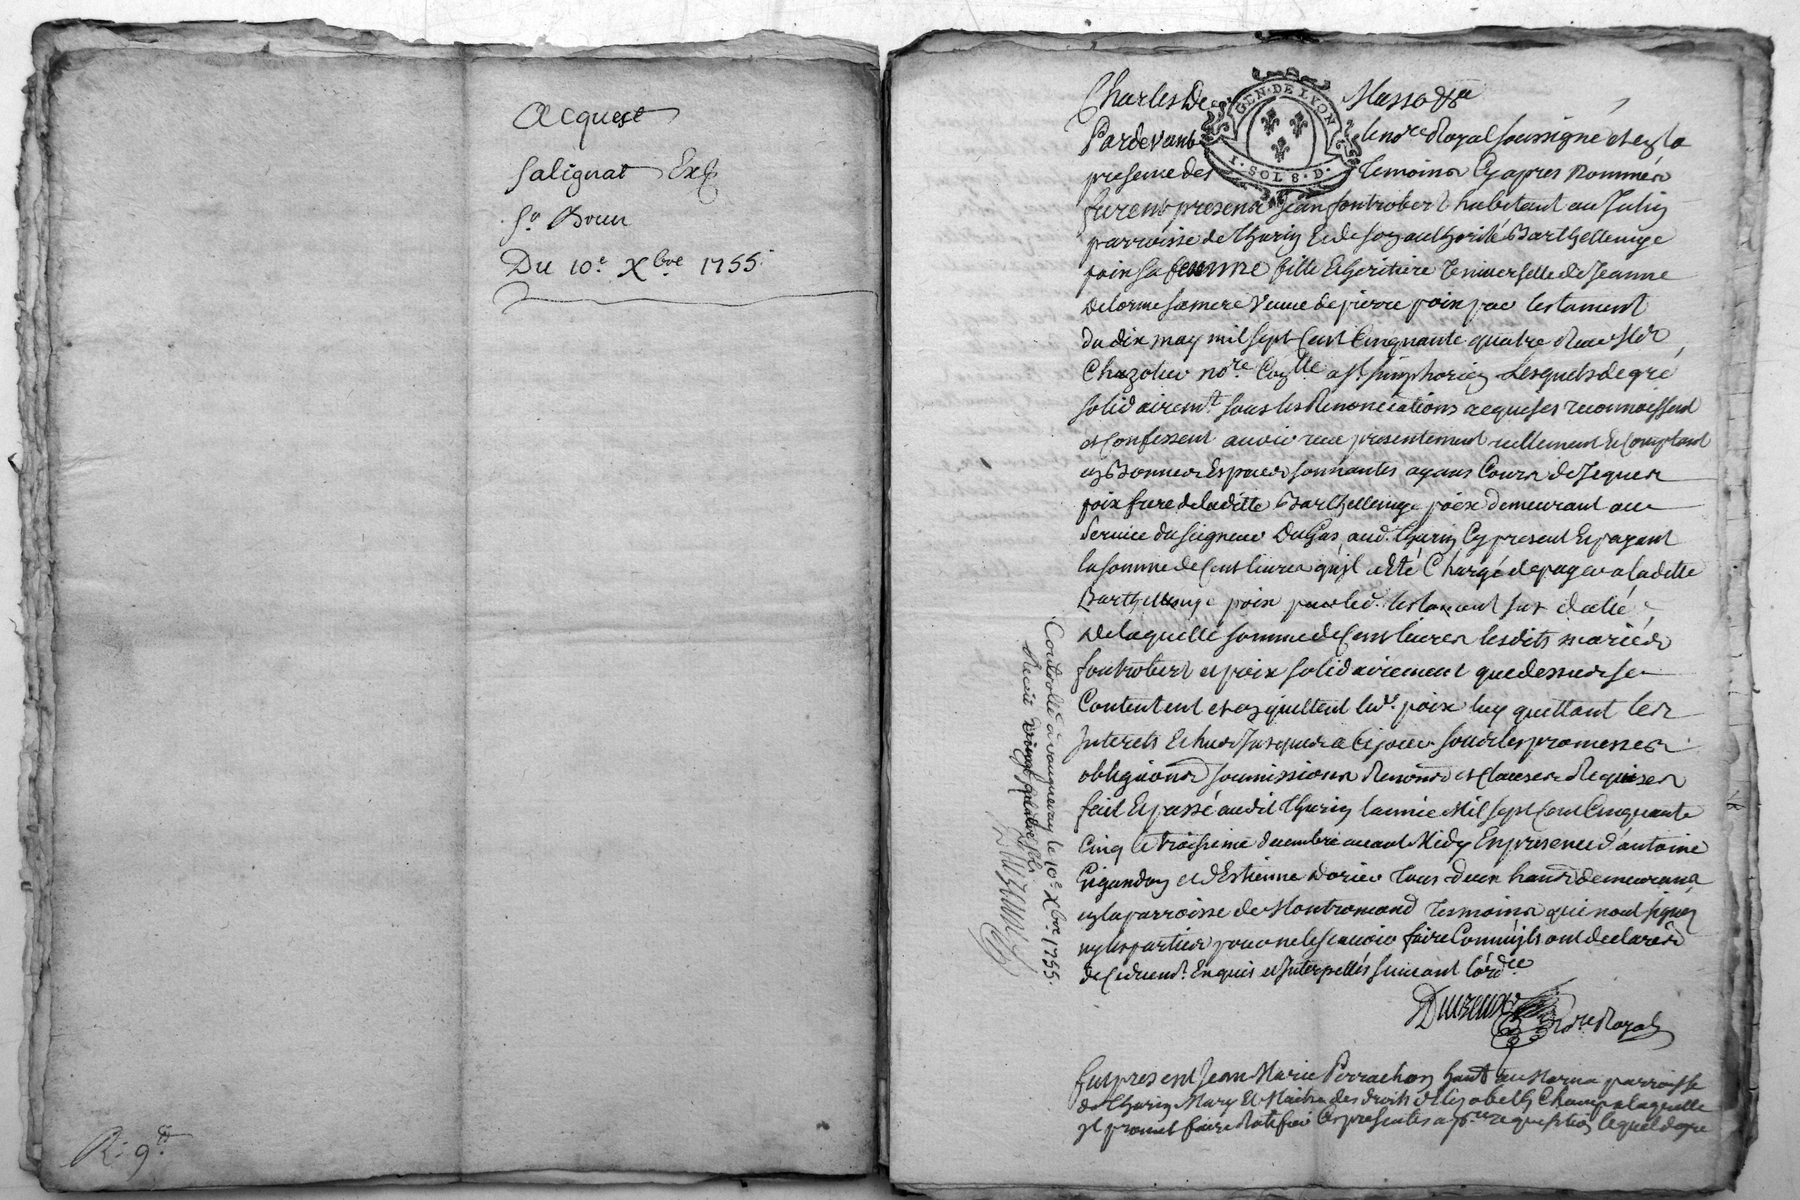 Acquest
Salignat Exp
Sr Brun
Du 10e Xbre 1755.
R: 9s
Charles De Masso &a
GEN. DE LYON
1. SOL 8. D.
Pardevant le nore Royal soussigné et en la
presence des Temoins Cy apres Nommés
furent presens Jean fontrobert habitant au Julin
parroisse de Thurin Et de son authorité Barthellemye
poix sa femme fille Et heritiere universelle de Jeanne
Delorme sa mere Veuve de pierre poix par testament
du dix may mil sept Cent Cinquante quatre Receu Mr
Chazotier nore Coll̃e a st simphorien Lesquels de gré
solidairemt sous les Renonciations requises reconnoissent
et Confessent avoir receu presentement reellement Et Comptant
en Bonnes Especes sonnantes ayans Cours de Jaques
poix frere de laditte Barthellemye poix demeurant au
Service du seigneur Dugas aud. Thurin Cy present Et payant
la somme de Cent livres qu'il a Eté Chargé de payer a laditte
Barthellemye poix par led. testament sus datté,
de laquelle somme de Cent livres lesdits mariés
fontrobert et poix solidairement que dessus se
Contentent et en quittent led. poix luy quittant les
Interets Echus Jusques a Ce jour sous les promesses
obligaõns soumissions Renonõns et Clauses Requises
fait Et passé audit Thurin l'année Mil sept Cent Cinquante
Cinq le troisieme decembre avant Midy En presence d'antoine
et d'Estienne Dorier tous deux habitants demeurans
en la parroisse de Montromand Tesmoins qui n'ont signé
ny les parties pour ne le scavoir faire Comm'ils ont declarés
de Ce duemt Enquis et Interpellés suivant l'ordce
Duzeux nore Royal
Controllé à vaugneray le 10e Xbre 1755.
Recu vingt quatre sols
fut present Jean Marie Perrachon habt au Marna parroisse
de Thurin Mary Et Maitre des droits d'Elizabeth Champ a laquelle
il promet faire Ratifier Ces presentes a pre requisition lequel de gré